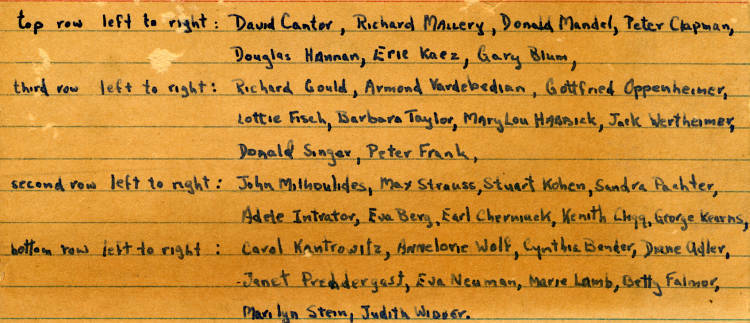 top row left to right: David Cantor, Richard Mallery, Donald Mandel, Peter Chapman,
Douglas Hannan, Eric Kaez, Gary Blum,
third row left to right: Richard Gould, Armond Vardebedian, Gottfried Oppenheimer,
Lottie Fisch, Barbara Taylor, Mary Lou Habbick, Jack Wertheimer,
Donald Singer, Peter Frank,
second row left to right: John Milhoulides, Max Strauss, Stuart Kohen, Sandra Pachter,
Adele Intrator, Eva Berg, Earl Cherniuck, Kenith Clegg, George Kearns,
bottom row left to right: Carol Kantrowitz, Annelorie Wolf, Cynthia Bender, Diane Adler,
Janet Prendergast, Eva Neuman, Marie Lamb, Betty
Marilyn Stein, Judith